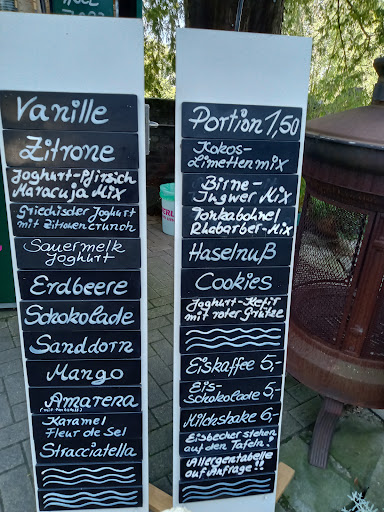 Vanille
Zitrone
Joghurt-Pfirsich
Maracuja Mix
Griechischer Joghurt
mit Zitronencrunch
Sauermelk
Joghurt
Erdbeere
Schokolade
Sanddorn
Mango
Amarena
Karamel
Fleur de Sel
Stracciatella
Portion 1,50
Kokos-
Limetten mix
Birne-
Ingwer Mix
Tonkabohnel
Rhabarber-Mix
Haselnuß
Cookies
Joghurt-Kefir
mit roter Grütze
Eiskaffee 5,-
Eis-
Schokolade 5,-
Milchshake 6-
Eisbecher stehen
auf den Tafeln!
Allergentabelle
auf Anfrage!!